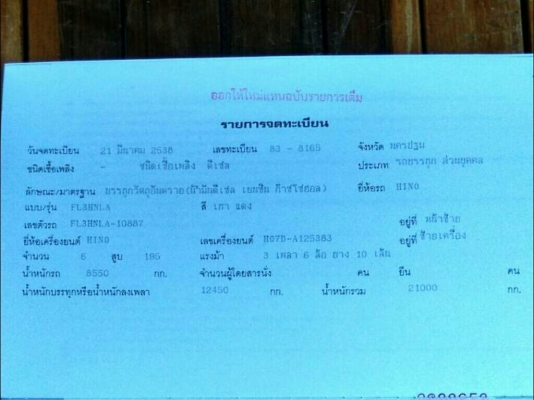 ออกให้ใหม่แทนฉบับรายการเดิม
รายการจดทะเบียน
วันจดทะเบียน 21 มีนาคม 2538 เลขทะเบียน 83 - 8165 จังหวัด นครปฐม
ชนิดเชื้อเพลิง - ชนิดเชื้อเพลิง ดีเซล ประเภท รถบรรทุก ส่วนบุคคล
ลักษณะ/มาตรฐาน บรรทุกวัตถุอันตราย(น้ำมันดีเซล เบนซิน ก๊าซโซฮอล) ยี่ห้อรถ HINO
แบบ/รุ่น FL3HNLA สี เทา แดง
เลขตัวรถ FL3HNLA-10887 อยู่ที่ หน้าซ้าย
ยี่ห้อเครื่องยนต์ HINO เลขเครื่องยนต์ H07D-A125383 อยู่ที่ ซ้ายเครื่อง
จำนวน 6 สูบ 195 แรงม้า 3 เพลา 6 ล้อ ยาง 10 เส้น
น้ำหนักรถ 8550 กก. จำนวนผู้โดยสารนั่ง คน ยืน คน
น้ำหนักบรรทุกหรือน้ำหนักลงเพลา 12450 กก. น้ำหนักรวม 21000 กก.